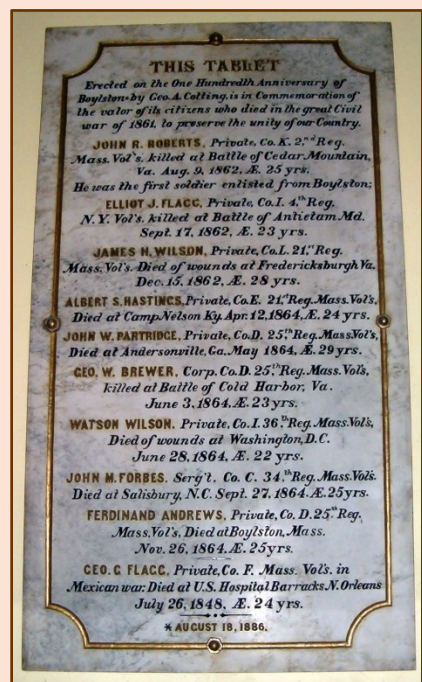 THIS TABLET
Erected on the One Hundredth Anniversary of
Boylston by Geo. A. Cotting, is in Commemoration of
the valor of its citizens who died in the great Civil
war of 1861, to preserve the unity of our Country.
JOHN R. ROBERTS, Private, Co. K. 2,nd Reg.
Mass. Vol's, killed at Battle of Cedar Mountain,
Va. Aug. 9, 1862, Æ. 25 yrs.
He was the first soldier enlisted from Boylston;
ELLIOT J. FLAGG, Private, Co. I. 4,th Reg,
N.Y. Vol's. killed at Battle of Antietam Md.
Sept. 17, 1862, Æ. 23 yrs.
JAMES H. WILSON, Private, Co. L. 21,st Reg.
Mass. Vol's. Died of wounds at Fredericksburgh Va.
Dec. 15, 1862, Æ. 28 yrs.
ALBERT S. HASTINGS, Private, Co. E. 21,st Reg. Mass. Vol's,
Died at Camp Nelson Ky. Apr. 12, 1864, Æ. 24 yrs.
JOHN W. PARTRIDGE, Private, Co. D. 25,th Reg. Mass. Vol's,
Died at Andersonville, Ga. May 1864, Æ. 29 yrs.
GEO. W. BREWER, Corp. Co. D. 25,th Reg. Mass. Vol's,
killed at Battle of Cold Harbor, Va.
June 3, 1864, Æ. 23 yrs.
WATSON WILSON. Private, Co. I. 36th Reg. Mass. Vol's,
Died of wounds at Washington, D.C.
June 28, 1864, Æ. 22 yrs.
JOHN M. FORBES. Serg't. Co. C. 34,th Reg. Mass. Vol's.
Died at Salisbury, N.C. Sept. 27, 1864. Æ. 25 yrs.
FERDINAND ANDREWS, Private, Co. D. 25th Reg.
Mass. Vol's, Died at Boylston, Mass.
Nov. 26, 1864. Æ. 25 yrs.
GEO. C FLAGG, Private, Co. F. Mass. Vol's. in
Mexican war. Died at U.S. Hospital Barracks. N. Orleans
July 26, 1848, Æ. 24 yrs.
* AUGUST 18, 1886.